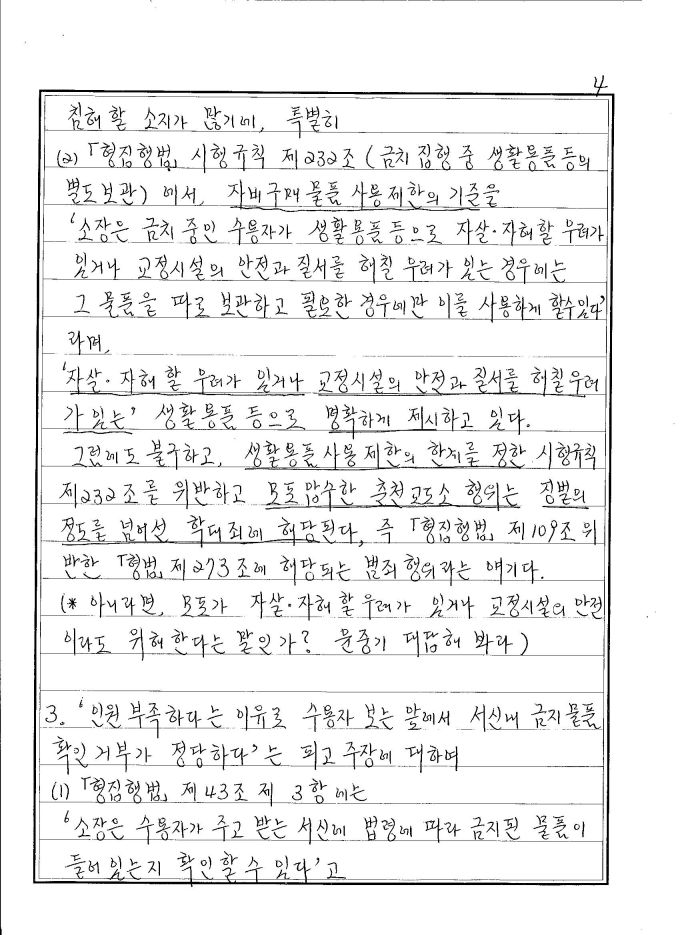 4
침해 할 소지가 많기에, 특별히
(2) 「형집행법」 시행규칙 제232조 (금치 집행 중 생활용품등의
별도보관) 에서, 자비구매물품 사용제한의 기준을
'소장은 금치 중인 수용자가 생활용품등으로 자살·자해할 우려가
있거나 교정시설의 안전과 질서를 해칠 우려가 있는 경우에는
그 물품을 따로 보관하고 필요한 경우에만 이를 사용하게 할수있다'
라며,
'자살·자해 할 우려가 있거나 교정시설의 안전과 질서를 해칠우려
가 있는' 생활용품 등으로 명확하게 제시하고 있다.
그럼에도 불구하고, 생활용품사용 제한의 한계를 정한 시행규칙
제232조를 위반하고 모포압수한 춘천교도소 행위는 징벌의
정도를 넘어선 학대죄에 해당된다, 즉 「형집행법」 제109조 위
반한 「형법」 제273조에 해당되는 범죄행위라는 얘기다.
(* 아니라면, 모포가 자살·자해할 우려가 있거나 교정시설의 안전
이라도 위해한다는 말인가? 문중기 대답해 봐라)
3. '인원 부족하다는 이유로 수용자 보는 앞에서 서신내 금지물품
확인거부가 정당하다'는 피고 주장에 대하여
(1) 「형집행법」 제43조 제 3항에는
'소장은 수용자가 주고 받는 서신에 법령에 따라 금지된 물품이
들어있는지 확인할 수 있다'고